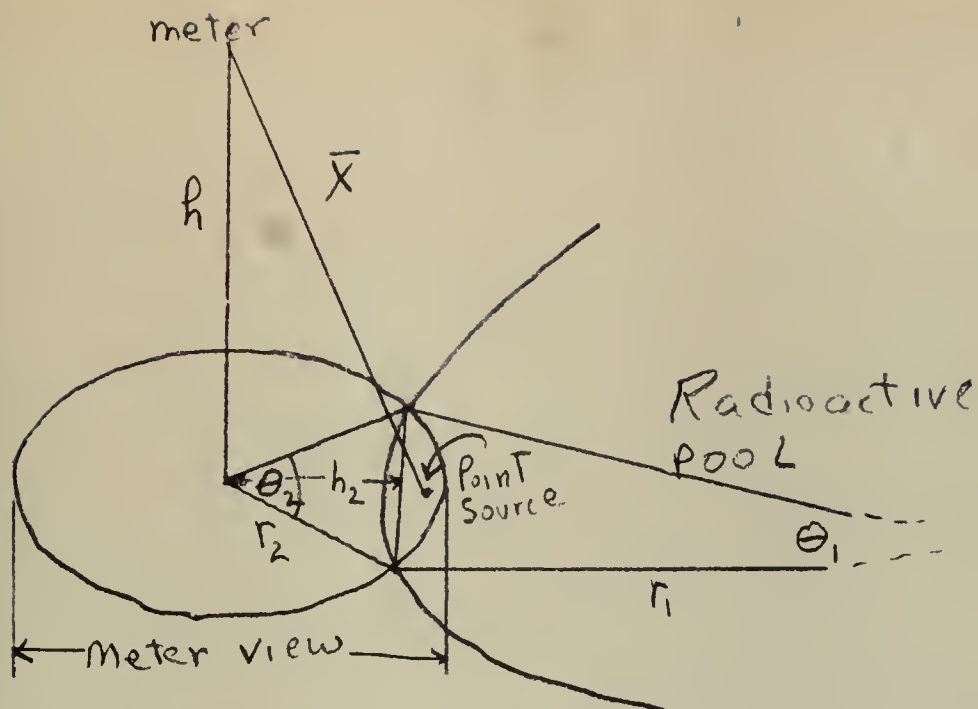 meter
X̄
h
Radioactive
POOL
Point
Source
θ₂
h₂
r₂
θ₁
r₁
Meter view